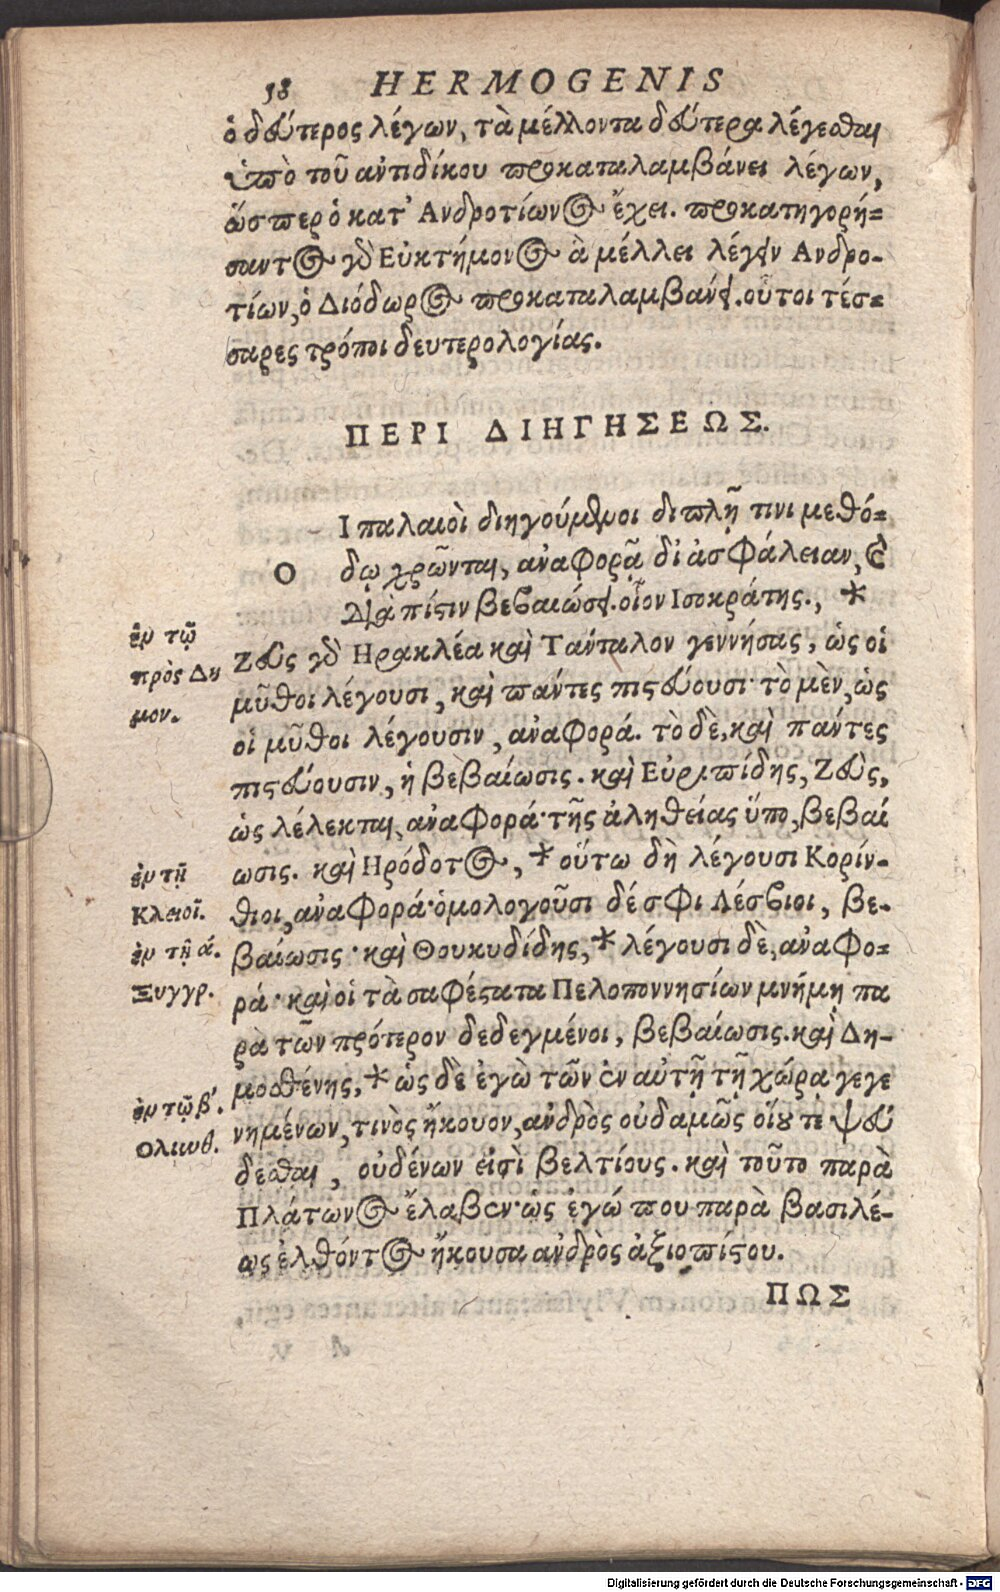 38 HERMOGENIS
ὁ δεύτερος λέγων, τὰ μέλλοντα δεύτερα λέγεσθαι
ὑπὸ τοῦ ἀντιδίκου προκαταλαμβάνει λέγων,
ὥσπερ ὁ κατ' Ανδροτίωνος ἔχει. προκατηγορή=
σαντος γὸ Εὐκτήμονος ἃ μέλλει λέγειν Ανδρο-
τίων, ὁ Διόδωρος προκαταλαμβάνει. οὗτοι τέσ=
σαρες τρόποι δευτερολογίας.
ΠΕΡΙ ΔΙΗΓΗΣΕΩΣ.
Ο Ι παλαιοὶ διηγούμενοι διπλῇ τινι μεθό=
δῳ χρῶνται, ἀναφορᾷ δι ἀσφάλειαν, καὶ
διὰ πίστιν βεβαιώσει. οἷον Ισοκράτης., *
ἐν τῷ
πρὸς Δη
μον.
Ζεὺς γὸ Ηρακλέα καὶ Ταύταλον γεννήσας, ὡς οἱ
μῦθοι λέγουσι, καὶ πάντες πιστεύουσι· τὸ μὲν, ὡς
οἱ μῦθοι λέγουσιν, ἀναφορά. τὸ δὲ, καὶ πάντες
πιστεύουσιν, ἡ βεβαίωσις. καὶ Εὐριπίδης, Ζεὺς,
ὡς λέλεκται, ἀναφορά· τῆς ἀληθείας ὕπο, βεβαί
ωσις. καὶ Ηρόδοτος, * οὕτω δὴ λέγουσι Κορίν-
ἐν τῇ
Κλειοῖ.
θιοι, ἀναφορά· ὁμολογοῦσι δέ σφι Λέσβιοι, βε-
βαίωσις· καὶ Θουκυδίδης, * λέγουσι δὲ, ἀναφο=
ἐν τῇ ά.
Ξυγγρ.
ρά· καὶ οἱ τὰ σαφέστατα Πελοποννησίων μνήμῃ πα
ρὰ τῶν πρότερον δεδεγμένοι, βεβαίωσις. καὶ Δη-
μοσθένης, * ὡς δὲ ἐγὼ τῶν ἐν αὐτῇ τῇ χώρᾳ γεγε
ἐν τῷ β'.
Ολιωθ.
νημένων, τινὸς ἤκουον, ἀνδρὸς οὐδαμῶς οἵου τε ψεύ
δεσθαι, οὐδένων εἰσὶ βελτίους. καὶ τοῦτο παρὰ
Πλάτωνος ἔλαβεν· ὡς ἐγώ που παρὰ βασιλέ-
ως ἐλθόντος ἤκουσα ἀνδρὸς ἀξιοπίστου.
ΠΩΣ
Digitalisierung gefördert durch die Deutsche Forschungsgemeinschaft - DFG